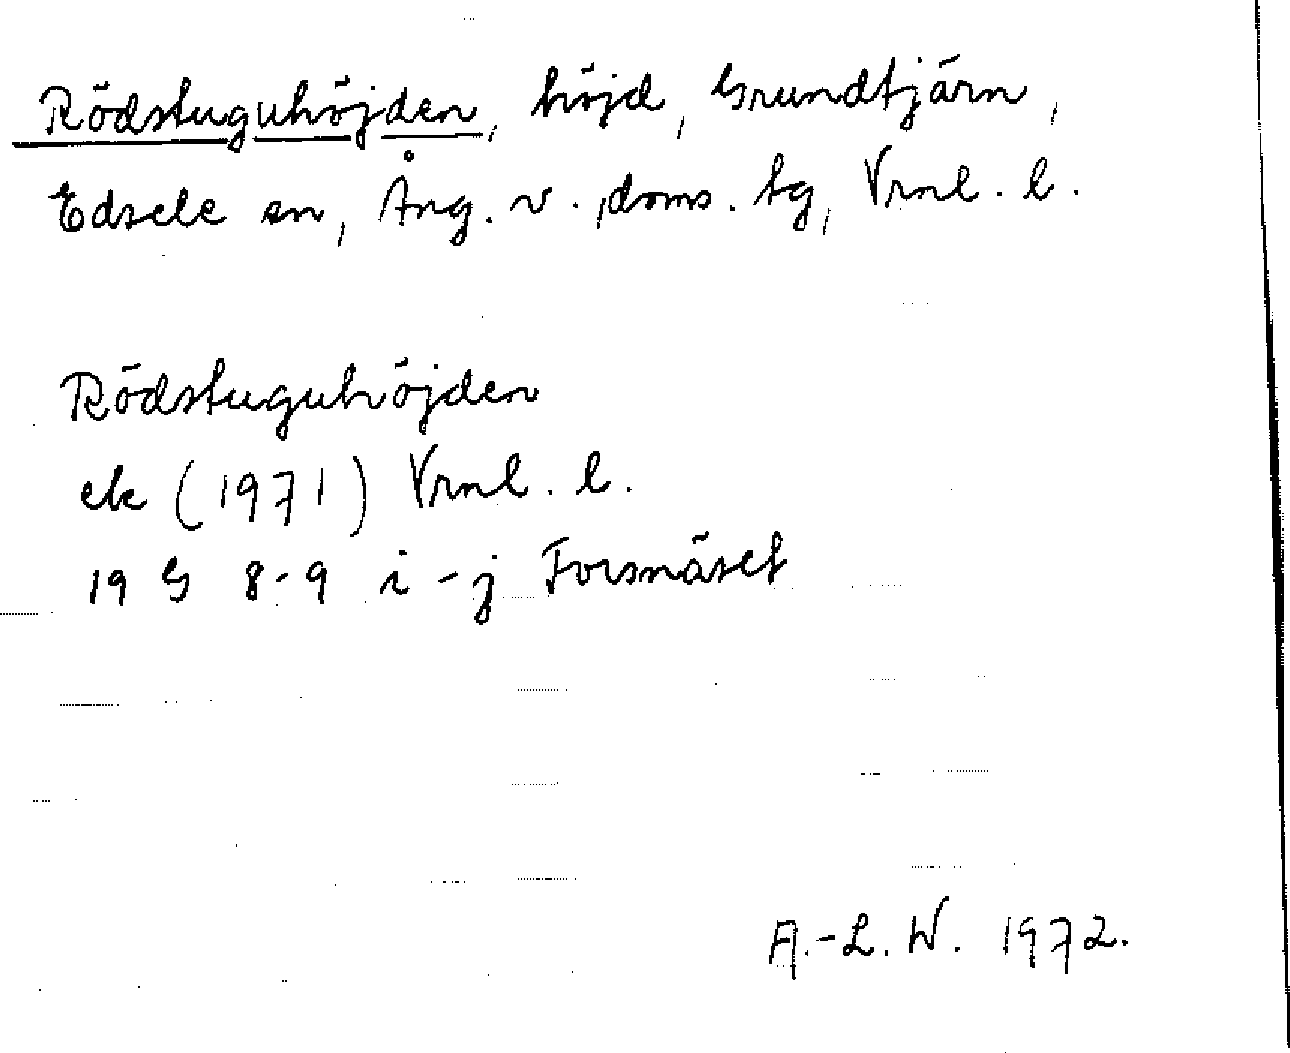 Rödstuguhöjden, höjd, Grundtjärn,
Edsele sn, Ång. v., doms. tg, Vrnl. l.
Rödstuguhöjden
ek (1971) Vrnl. l.
19 G 8-9 i-j Forsnäset
A.-L. W. 1972.